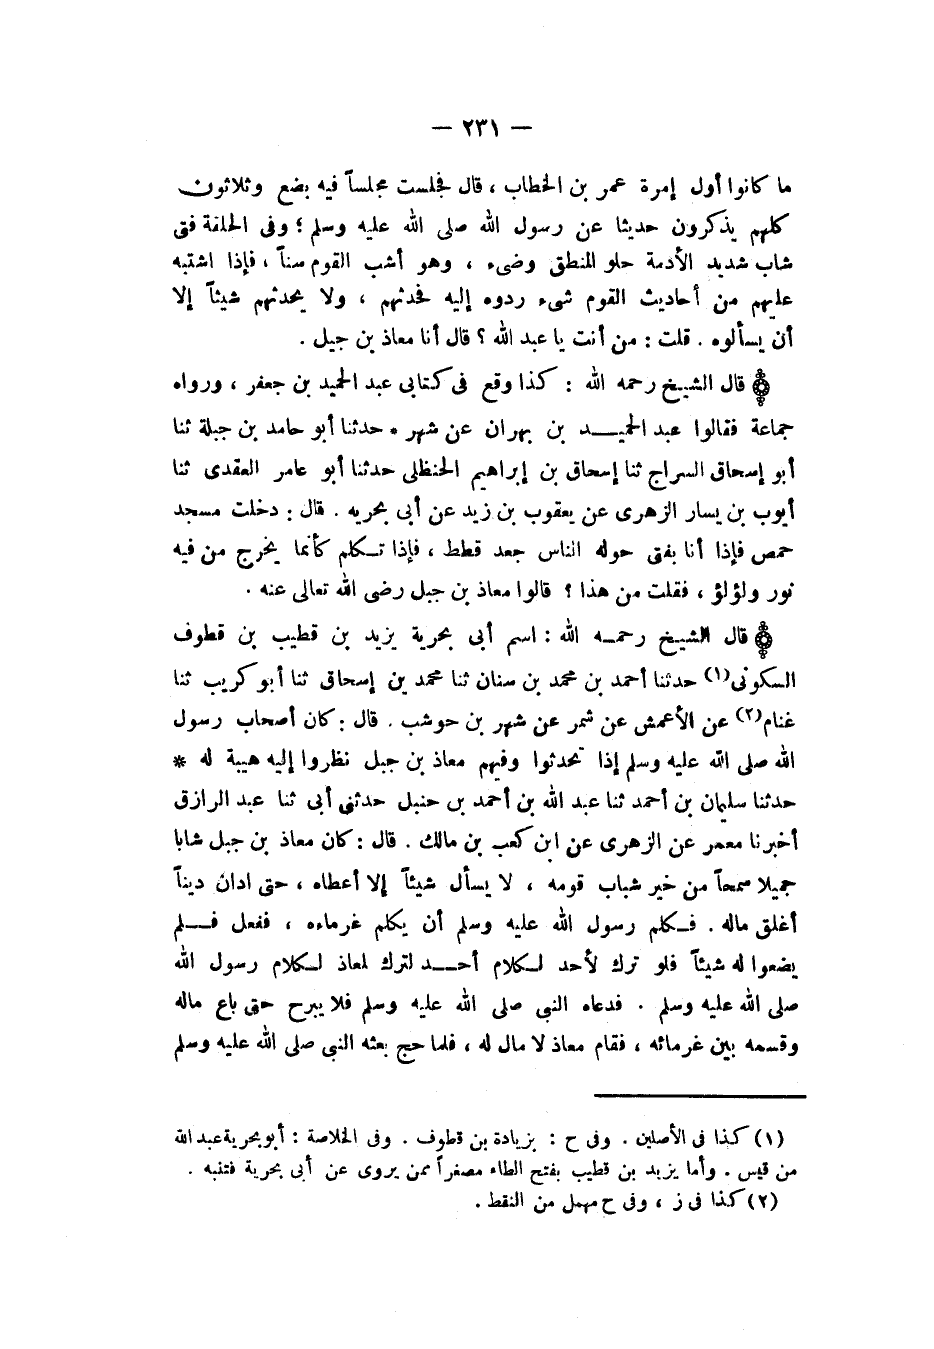 — ٢٣١ —
ما كانوا أول إمرة عمر بن الخطاب ، قال فجلست مجلساً فيه بضع وثلاثون
كلهم يذكرون حديثا عن رسول الله صلى الله عليه وسلم ؛ وفى الحلقة فتى
شاب شديد الأدمة حلو المنطق وضىء ، وهو أشب القوم سناً ، فإذا اشتبه
عليهم من أحاديث القوم شىء ردوه إليه فحدثهم ، ولا يحدثهم شيئاً إلا
أن يسألوه . قلت : من أنت يا عبد الله ؟ قال أنا معاذ بن جبل .
قال الشيخ رحمه الله : كذا وقع فى كتابى عبد الحميد بن جعفر ، ورواه
جماعة فقالوا عبد الحميد بن بهران عن شهر * حدثنا أبو حامد بن جبلة ثنا
أبو إسحاق السراج ثنا إسحاق بن إبراهيم الحنظلى حدثنا أبو عامر العقدى ثنا
أيوب بن يسار الزهرى عن يعقوب بن زيد عن أبى بحريه . قال : دخلت مسجد
حمص فإذا أنا بفتى حوله الناس جعد قطط ، فإذا تكلم كأنما يخرج من فيه
نور ولؤلؤ ، فقلت من هذا ؟ قالوا معاذ بن جبل رضى الله تعالى عنه .
قال الشيخ رحمه الله : اسم أبى بحرية يزيد بن قطيب بن قطوف
السكونى(١) حدثنا أحمد بن محمد بن سنان ثنا محمد بن إسحاق ثنا أبو كريب ثنا
غنام(٢) عن الأعمش عن شمر عن شهر بن حوشب . قال : كان أصحاب رسول
الله صلى الله عليه وسلم إذا تحدثوا وفيهم معاذ بن جبل نظروا إليه هيبة له *
حدثنا سليمان بن أحمد ثنا عبد الله بن أحمد بن حنبل حدثنى أبى ثنا عبد الرازق
أخبرنا معمر عن الزهرى عن ابن كعب بن مالك . قال : كان معاذ بن جبل شابا
جميلا سمحاً من خير شباب قومه ، لا يسأل شيئاً إلا أعطاه ، حتى ادان ديناً
أغلق ماله . فكلم رسول الله عليه وسلم أن يكلم غرماءه ، ففعل فلم
يضعوا له شيئاً فلو ترك لأحد لكلام أحد لترك لمعاذ لكلام رسول الله
صلى الله عليه وسلم . فدعاه النبى صلى الله عليه وسلم فلا يبرح حتى باع ماله
وقسمه بين غرمائه ، فقام معاذ لا مال له ، فلما حج بعثه النبى صلى الله عليه وسلم
(١) كذا فى الأصلين . وفى ح : بزيادة بن قطوف . وفى الخلاصة : أبو بحرية عبد الله
من قيس . وأما يزيد بن قطيب بفتح الطاء مصغراً ممن يروى عن أبى بحرية فتنبه .
(٢) كذا فى ز ، وفى ح مهمل من النقط .